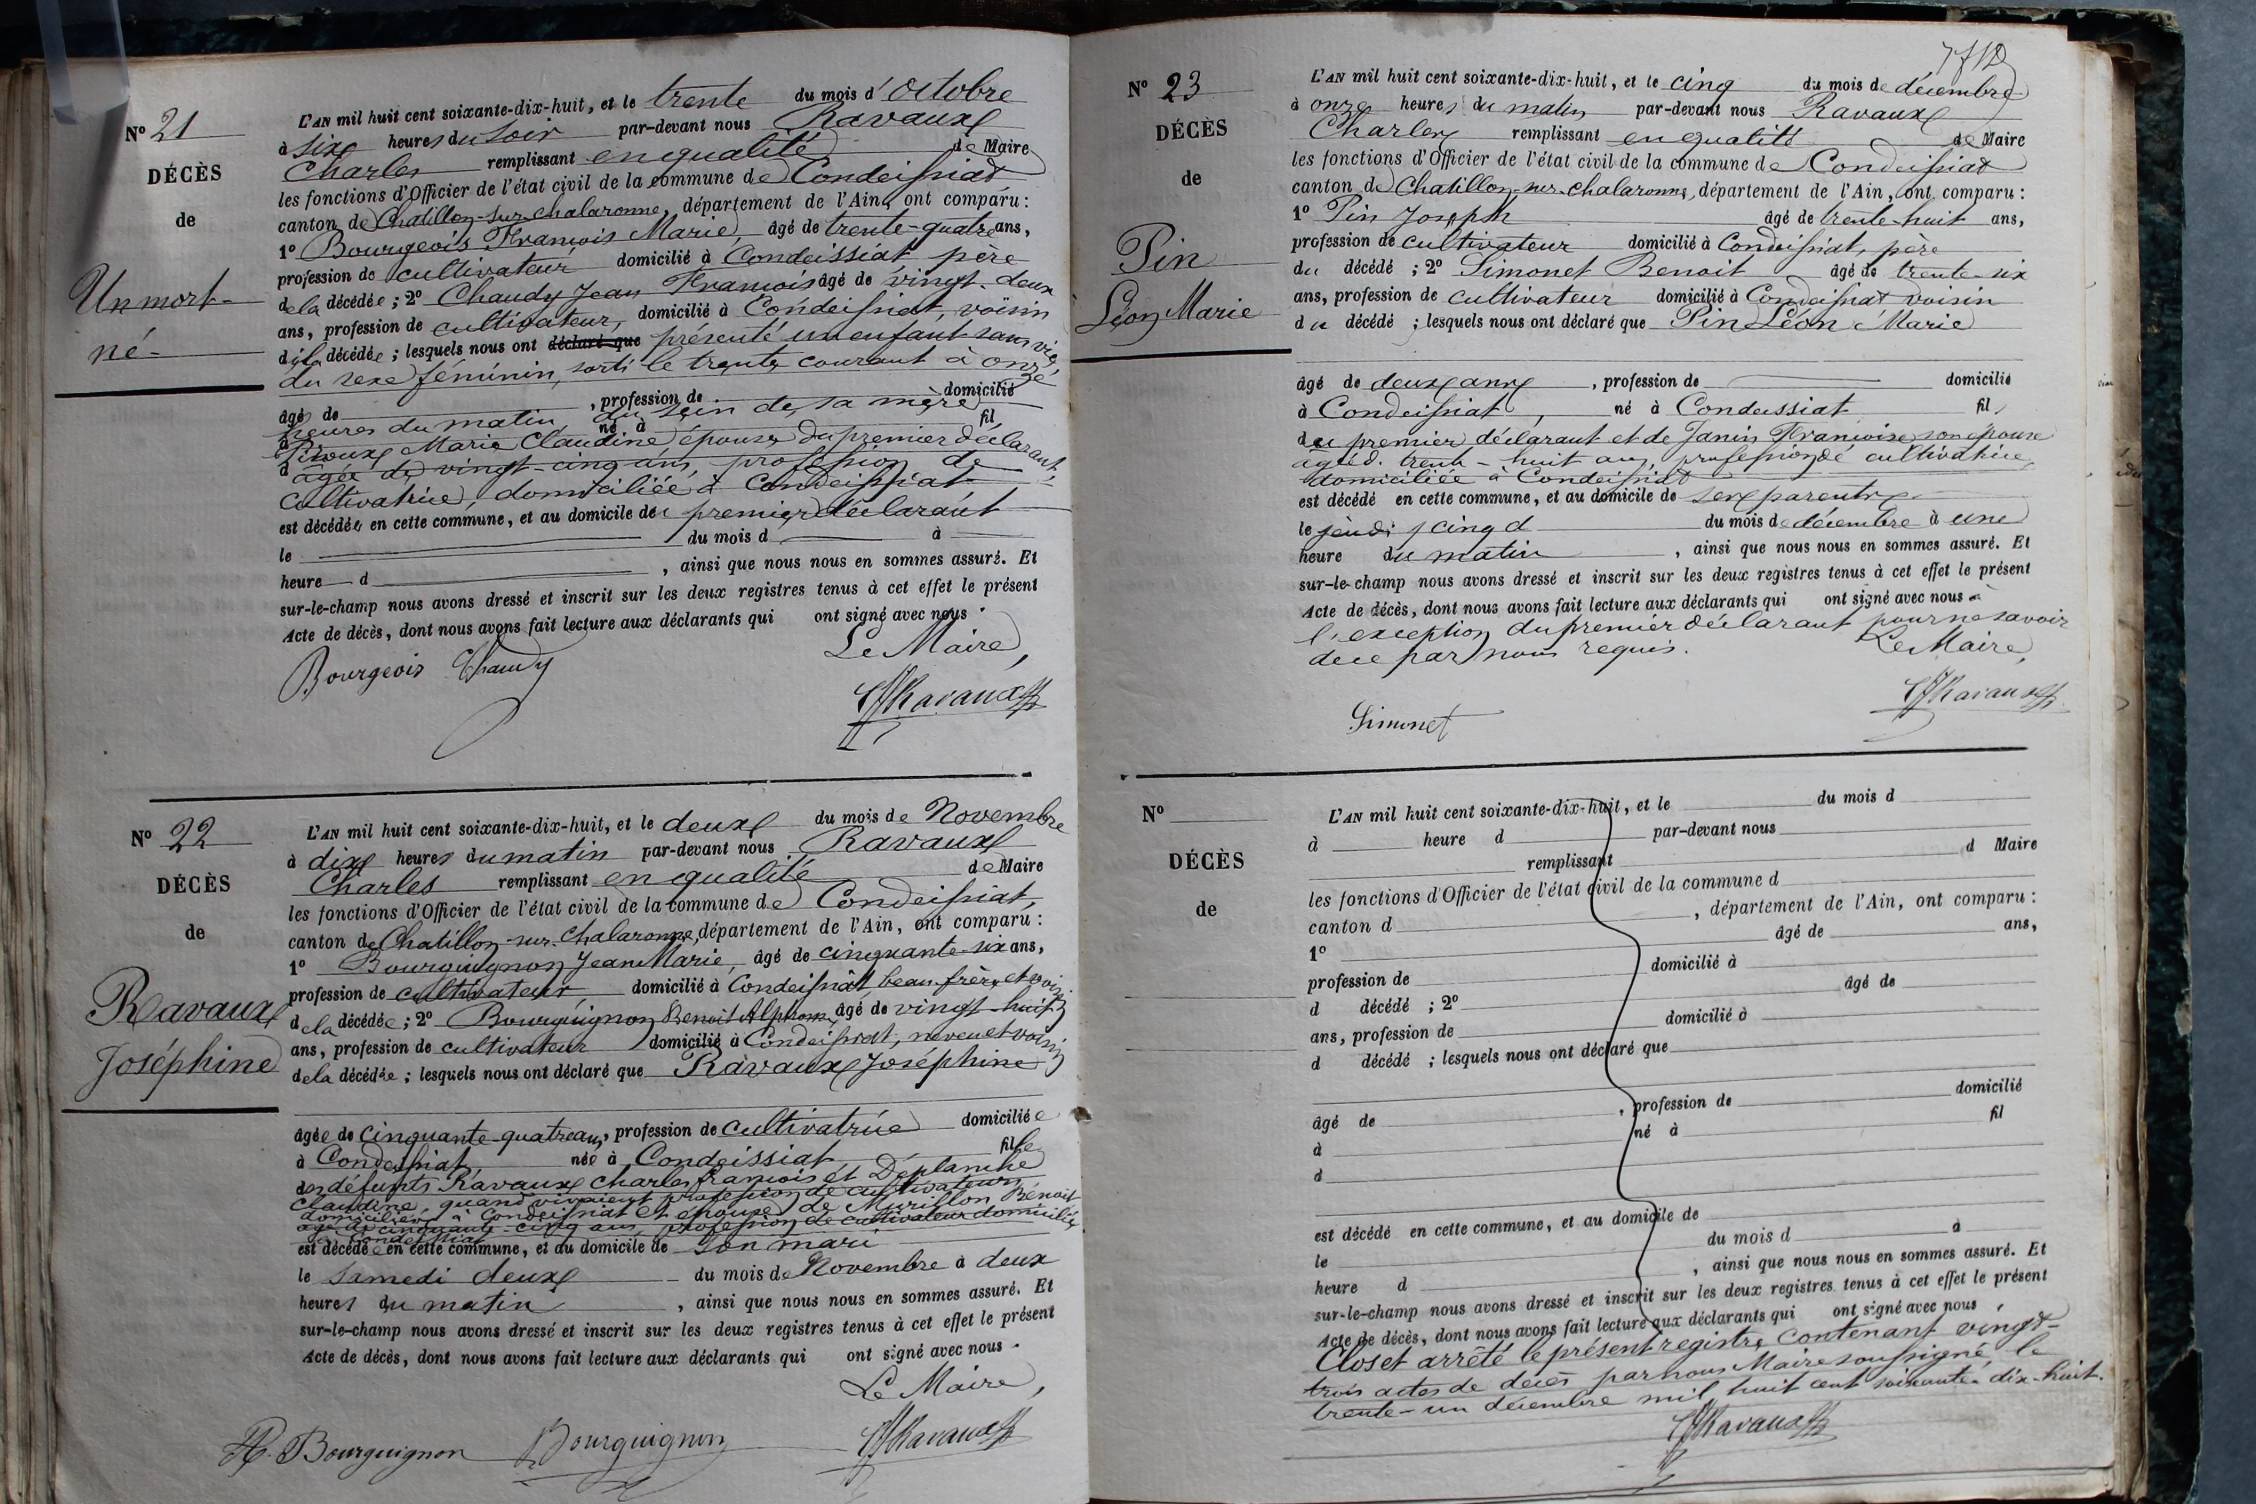 N° 21
DÉCÈS
de
Un mort-
né-
L'AN mil huit cent soixante-dix-huit, et le trente du mois d'octobre
à six heures du soir par-devant nous Ravaux
Charles remplissant en qualité de Maire
les fonctions d'Officier de l'état civil de la commune de Condeissiat
canton de Chatillon-sur-chalaronne, département de l'Ain, ont comparu :
1° Bourgeois François Marie, âgé de trente-quatre ans,
profession de cultivateur domicilié à Condeissiat père
de la décédée ; 2° Chaudy Jean François âgé de vingt-deux
ans, profession de cultivateur, domicilié à Condeissiat, voisin
de la décédée ; lesquels nous ont déclaré que présenté un enfant sans vie,
du sexe féminin, sorti le trente courant à onze
âgé de , profession de domicilié
heures du matin du sein de sa mère
à né à fil
Marie Claudine épouse du premier déclarant,
d âgée de vingt-cinq ans, profession de
cultivatrice, domiciliée à Condeissiat
est décédée en cette commune, et au domicile du premier déclarant
le du mois d à
heure d , ainsi que nous nous en sommes assuré. Et
sur-le-champ nous avons dressé et inscrit sur les deux registres tenus à cet effet le présent
Acte de décès, dont nous avons fait lecture aux déclarants qui ont signé avec nous.
Le Maire,
Bourgeois Chaudy
Ravaux
N° 22
DÉCÈS
de
Ravaux
Joséphine
L'AN mil huit cent soixante-dix-huit, et le deux du mois de Novembre
à dix heures du matin par-devant nous Ravaux
Charles remplissant en qualité de Maire
les fonctions d'Officier de l'état civil de la commune de Condeissiat,
canton de Chatillon-sur-Chalaronne, département de l'Ain, ont comparu :
1° Bourguignon Jean Marie, âgé de cinquante-six ans,
profession de cultivateur, domicilié à Condeissiat, beau frère et voisin
de la décédée ; 2° Bourguignon Benoit Alphonse, âgé de vingt-huit
ans, profession de cultivateur domicilié à Condeissiat, neveu et voisin
de la décédée ; lesquels nous ont déclaré que Ravaux Joséphine
âgée de cinquante-quatre ans, profession de cultivatrice domiciliée
à Condeissiat, née à Condeissiat fille
des défunts Ravaux Charles François et Deplanche
Claudine, quand vivaient profession de cultivateurs
domiciliés à Condeissiat et épouse de Murillon Benoit
âgé de cinquante-cinq ans, profession de cultivateur domicilié
à Condeissiat
est décédée en cette commune, et au domicile de son mari
le samedi deux du mois de Novembre à deux
heures du matin , ainsi que nous nous en sommes assuré. Et
sur-le-champ nous avons dressé et inscrit sur les deux registres tenus à cet effet le présent
Acte de décès, dont nous avons fait lecture aux déclarants qui ont signé avec nous.
Le Maire,
Bourguignon Bourguignon Ravaux
N° 23
DÉCÈS
de
Pin
Léon Marie
L'AN mil huit cent soixante-dix-huit, et le cinq du mois de décembre
à onze heures du matin par-devant nous Ravaux
Charles remplissant en qualité de Maire
les fonctions d'Officier de l'état civil de la commune de Condeissiat
canton de Chatillon-sur-chalaronne, département de l'Ain, ont comparu :
1° Pin Joseph âgé de trente-huit ans,
profession de cultivateur domicilié à Condeissiat, père
du décédé ; 2° Simonet Benoit âgé de trente-six
ans, profession de cultivateur domicilié à Condeissiat voisin
du décédé ; lesquels nous ont déclaré que Pin Léon Marie
âgé de deux ans , profession de domicilié
à Condeissiat, né à Condeissiat fils
du premier déclarant et de Janin Françoise son épouse
âgée de trente-huit ans, profession de cultivatrice,
domiciliée à Condeissiat
est décédé en cette commune, et au domicile de ses parents
le jeudi cinq du mois de décembre à une
heure du matin , ainsi que nous nous en sommes assuré. Et
sur-le-champ nous avons dressé et inscrit sur les deux registres tenus à cet effet le présent
Acte de décès, dont nous avons fait lecture aux déclarants qui ont signé avec nous à
l'exception du premier déclarant pour ne savoir
de ce par nous requis. Le Maire,
Ravaux
Simonet
N°
DÉCÈS
de
L'AN mil huit cent soixante-dix-huit, et le du mois d
à heure d par-devant nous
remplissant d Maire
les fonctions d'Officier de l'état civil de la commune d
canton d , département de l'Ain, ont comparu :
1° âgé de ans,
profession de domicilié à
d décédé ; 2° âgé de
ans, profession de domicilié à
d décédé ; lesquels nous ont déclaré que
âgé de , profession de domicilié
à né à fil
d
est décédé en cette commune, et au domicile de
le du mois d à
heure d , ainsi que nous nous en sommes assuré. Et
sur-le-champ nous avons dressé et inscrit sur les deux registres tenus à cet effet le présent
Acte de décès, dont nous avons fait lecture aux déclarants qui ont signé avec nous
Clos et arrêté le présent registre contenant vingt-
trois actes de décès par nous Maire soussigné, le
trente-un décembre mil huit cent soixante-dix-huit.
Ravaux